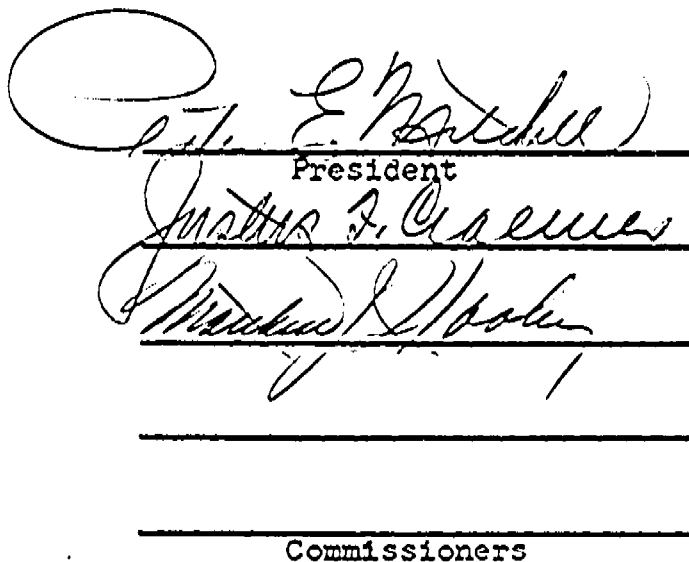 Peter E. Mitchell
President
Justus F. Craemer
Matthew J. Dooley
Commissioners